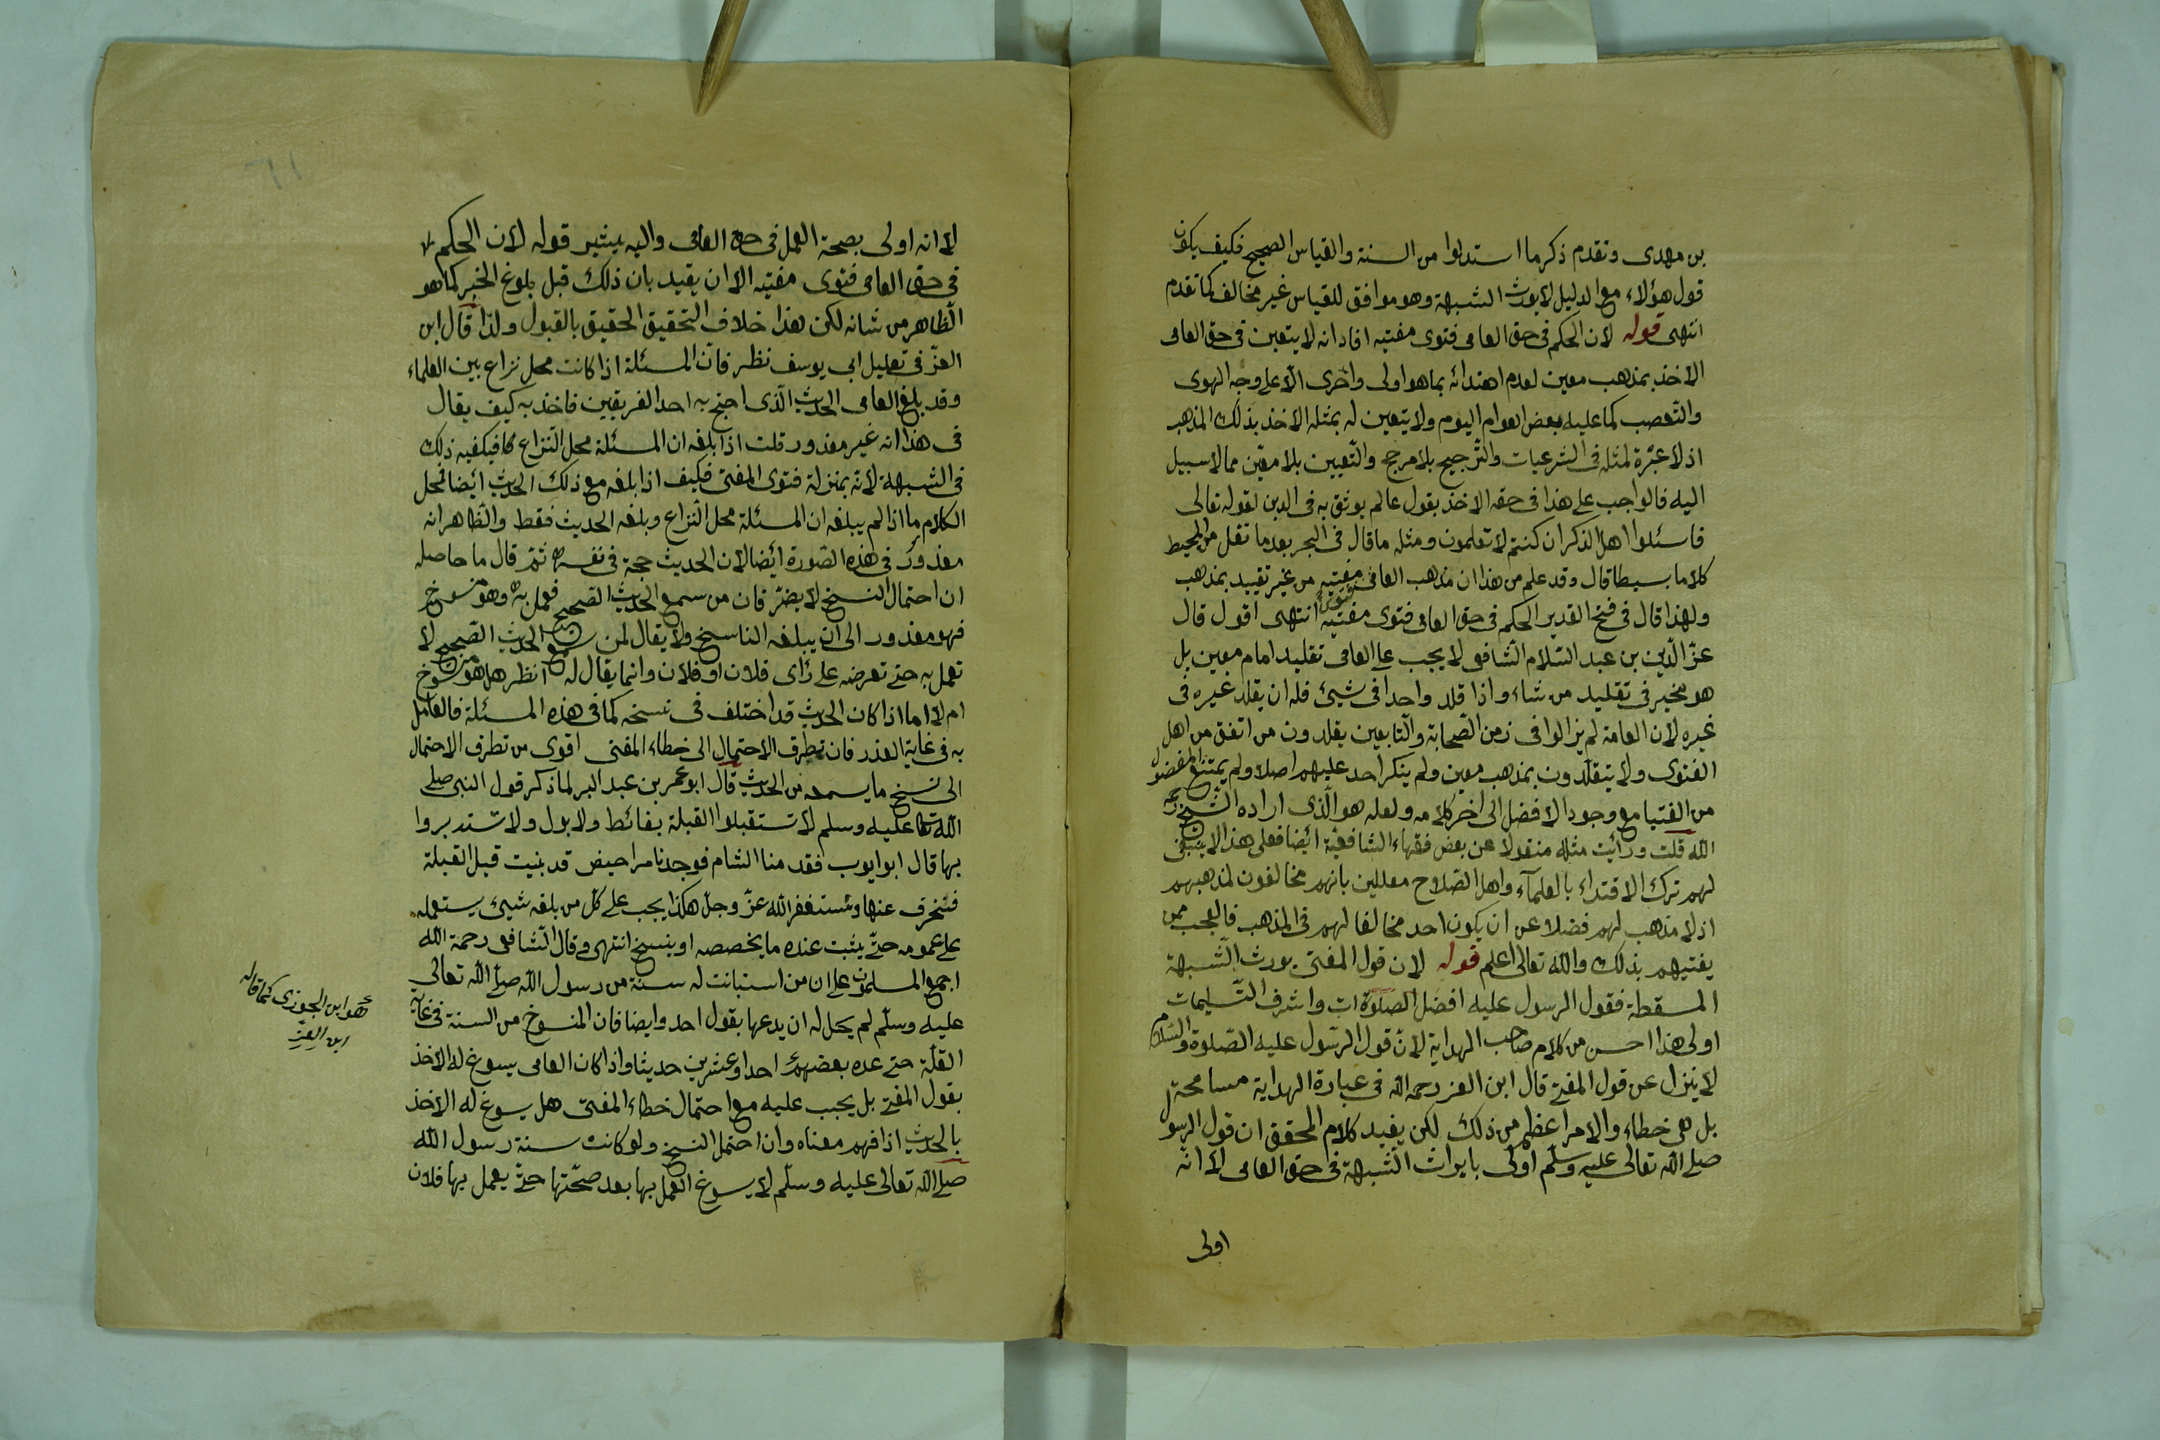 بن مهدى وتقدم ذكر ما استدلوا من السنة والقياس الصحيح فكيف يكون
قول هؤلاء مع الدليل لا يورث الشبهة وهو موافق للقياس غير مخالف كما تقدم
انتهى قوله لان الحكم فى حق العامى فتوى مفتيه افاد انه لا يتعين فى حق العامى
الاخذ بمذهب معين لعدم اهتدائه بما هو اولى واحرى الّا على وجه الهوى
والتّعصب كما عليه بعض العوام اليوم ولا يتعين له بمثله الاخذ بذلك المذهب
اذ لا عبرة لمثله فى الشرعيات والتّرجيح بلا مرجح والتّعيين بلا معيّن مما لا سبيل
اليه فالواجب على هذا فى حقه الاخذ بقول عالم يوثق به فى الدين لقوله تعالى
فاسئلوا اهل الذكر ان كنتم لا تعلمون ومثله ما قال فى البحر بعد ما نقل من المحيط
كلاما بسيطا قال وقد علم من هذا ان مذهب العامى فتوى مفتيه من غير تقييد بمذهب
ولهذا قال فى فتح القدير الحكم فى حق العامى فتوى مفتيه انتهى اقول قال
عزّ الدّين بن عبد السّلام الشّافعى لا يجب على العامى تقليد امام معين بل
هو مخير فى تقليد من شاء واذا قلد واحدا فى شيئ فله ان يقلد غيره فى
غيره لان العامة لم يزالوا فى زمن الصّحابة والتّابعين يقلدون من اتفق من اهل
الفتوى ولا يتقلّدون بمذهب معين ولم ينكر احد عليهم اصلا ولم يمتنع المفضول
من الفتيا مع وجود الافضل الى اخر كلامه ولعله هو الّذى اراده الشّيخ رحمه
الله قلت ورأيت مثله منقولا عن بعض فقهاء الشافعيّة ايضا فعلى هذا لا ينبغى
لهم ترك الاقتداء بالعلمآء واهل الصّلاح معللين بانهم مخالفون لمذهبهم
اذ لا مذهب لهم فضلا عن ان يكون احد مخالفا لهم فى المذهب فالعجب ممن
يفتيهم بذلك والله تعالى اعلم قوله لان قول المفتى يورث الشّبهة
المسقطة فقول الرسول عليه افضل الصّلوات واشرف التّسليمات
اولى هذا احسن من كلام صاحب الهداية لانّ قول الرّسول عليه الصّلوة والسّلام
لا ينزل عن قول المفتى قال ابن العز رحمه الله فى عبارة الهداية مسامحة
بل هى خطاء والامر اعظم من ذلك لكن يفيد كلام المحقق ان قول الرسول
صلى الله تعالى عليه وسلّم اولى بايراث الشّبهة فى حق العامى لا انّه
اولى
لا انه اولى بصحة العمل فى حق العامى واليه يشير قوله لان الحكم
فى حق العامى فتوى مفتيه الا ان يقيد بان ذلك قبل بلوغ الخبر كما هو
الظّاهر من شانه لكن هذا خلاف التحقيق الحقيق بالقبول ولذا قال ابن
العزّ فى تعليل ابى يوسف نظر فانّ المسئلة اذا كانت محل نزاع بين العلماء
وقد بلغ العامى الحديث الّذى احتج به احد الفريقين فاخذ به كيف يقال
فى هذا انه غير معذور قلت اذا بلغه ان المسئلة محل النّزاع فيكفيه ذلك
فى الشّبهة لانّه بمنزلة فتوى المفتى فكيف اذا بلغه مع ذلك الحديث ايضا فمحل
الكلام ما اذا لم يبلغه ان المسئلة محل النّزاع وبلغه الحديث فقط والظّاهر انه
معذور فى هذه الصّورة ايضا لان الحديث حجة فى نفسه ثم قال ما حاصله
ان احتمال النسخ لا يضرّ فان من سمع الحديث الصحيح فعمل به وهو منسوخ
فهو معذور الى ان يبلغه الناسخ ولا يقال لمن سمع الحديث الصّحيح لا
تعمل به حتى تعرضه على رأى فلان او فلان وانما يقال له انظر هل هو منسوخ
ام لا اما اذا كان الحديث قد اختلف فى نسخه كما فى هذه المسئلة فالعامل
به فى غاية العذر فان تطرق الاحتمال الى خطاء المفتى اقوى من تطرق الاحتمال
الى نسخ ما يسمعه من الحديث قال ابو عمر بن عبد البر لما ذكر قول النبى صلى
الله تعالى عليه وسلم لا تستقبلوا القبلة بغائط ولا بول ولا تستدبروا
بها قال ابو ايوب فقدمنا الشام فوجدنا مراحيض قد بنيت قبل القبلة
فننحرف عنها ونستغفر الله عزّ وجلّ هكذا يجب على كل من بلغه شيئ يستعمله
على عمومه حتى يثبت عنده ما يخصصه او ينسخ انتهى وقال الشّافعى رحمة الله
اجمع المسلمون على ان من استبانت له سنة من رسول الله صلى الله تعالى
عليه وسلّم لم يحل له ان يدعها بقول احد وايضا فان المنسوخ من السنة فى غاية
القلّة حتى عده بعضهم احدا وعشرين حديثا واذا كان العامى يسوغ له الاخذ
بقول المفتى بل يجب عليه مع احتمال خطاء المفتى هل يسوغ له الاخذ
بالحديث اذا فهم معناه وان احتمل النسخ ولو كانت سنة رسول الله
صلى الله تعالى عليه وسلّم لا يسوغ العمل بها بعد صحّتها حتى يعمل بها فلان
هو ابن الجوزى كما قاله
ابن العزّ